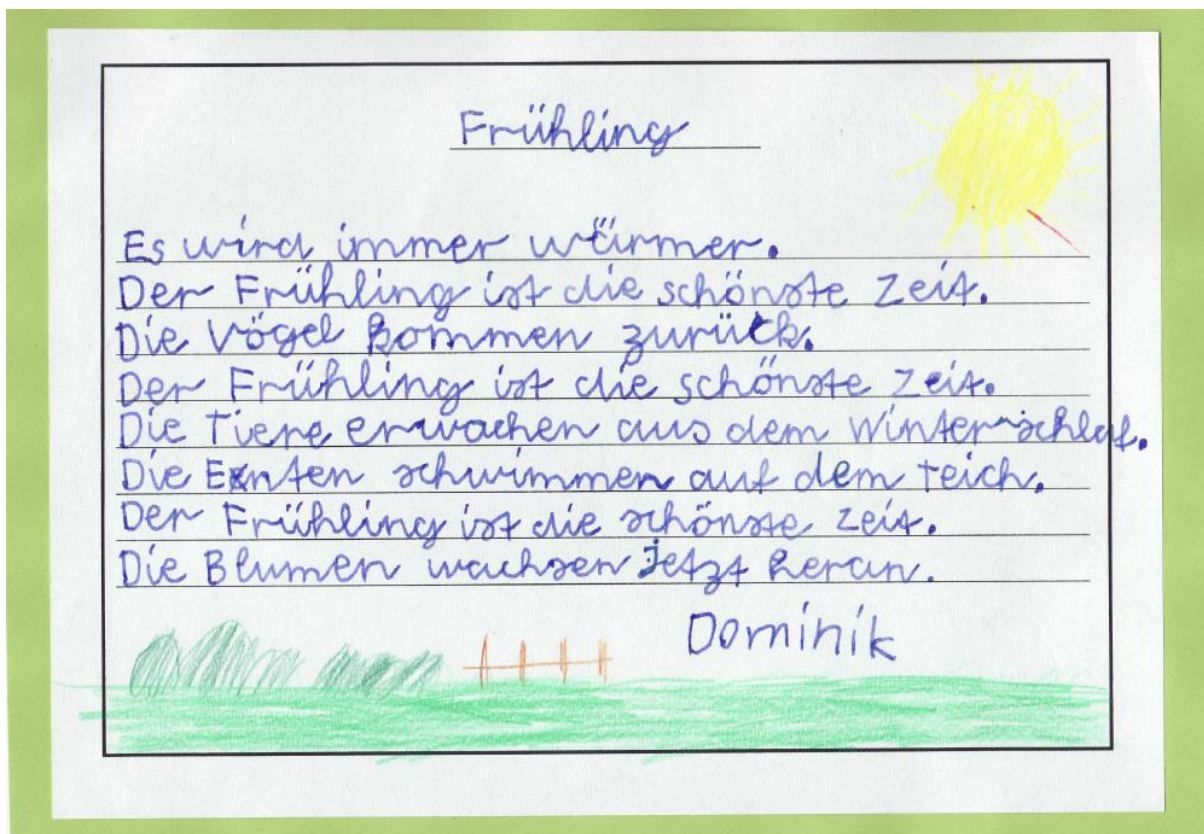 Frühling
Es wird immer wärmer.
Der Frühling ist die schönste Zeit.
Die Vögel kommen zurück.
Der Frühling ist die schönste Zeit.
Die Tiere erwachen aus dem Winterschlaf.
Die Enten schwimmen auf dem Teich.
Der Frühling ist die schönste Zeit.
Die Blumen wachsen jetzt heran.
Dominik